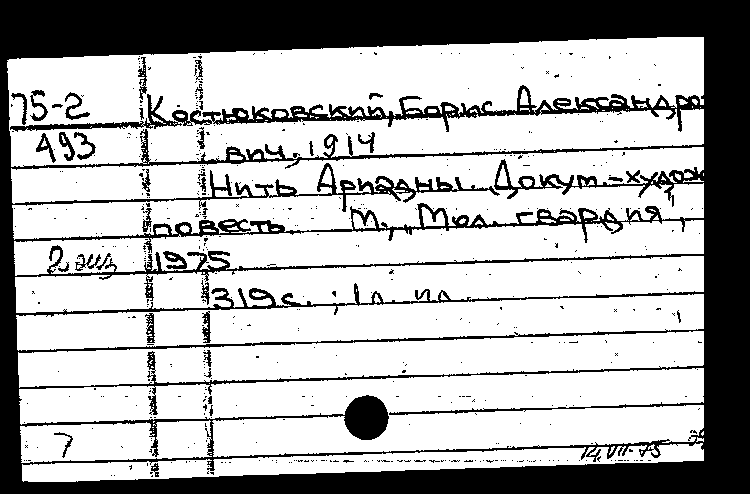 75-2 Костюковский, Борис Александро
493 вич, 1914
Нить Ариадны. Докут.-худож
повесть. М., „Мол. гвардия",
2 экз 1975.
319 с.; 1 л. ил.
7
14.VII-75